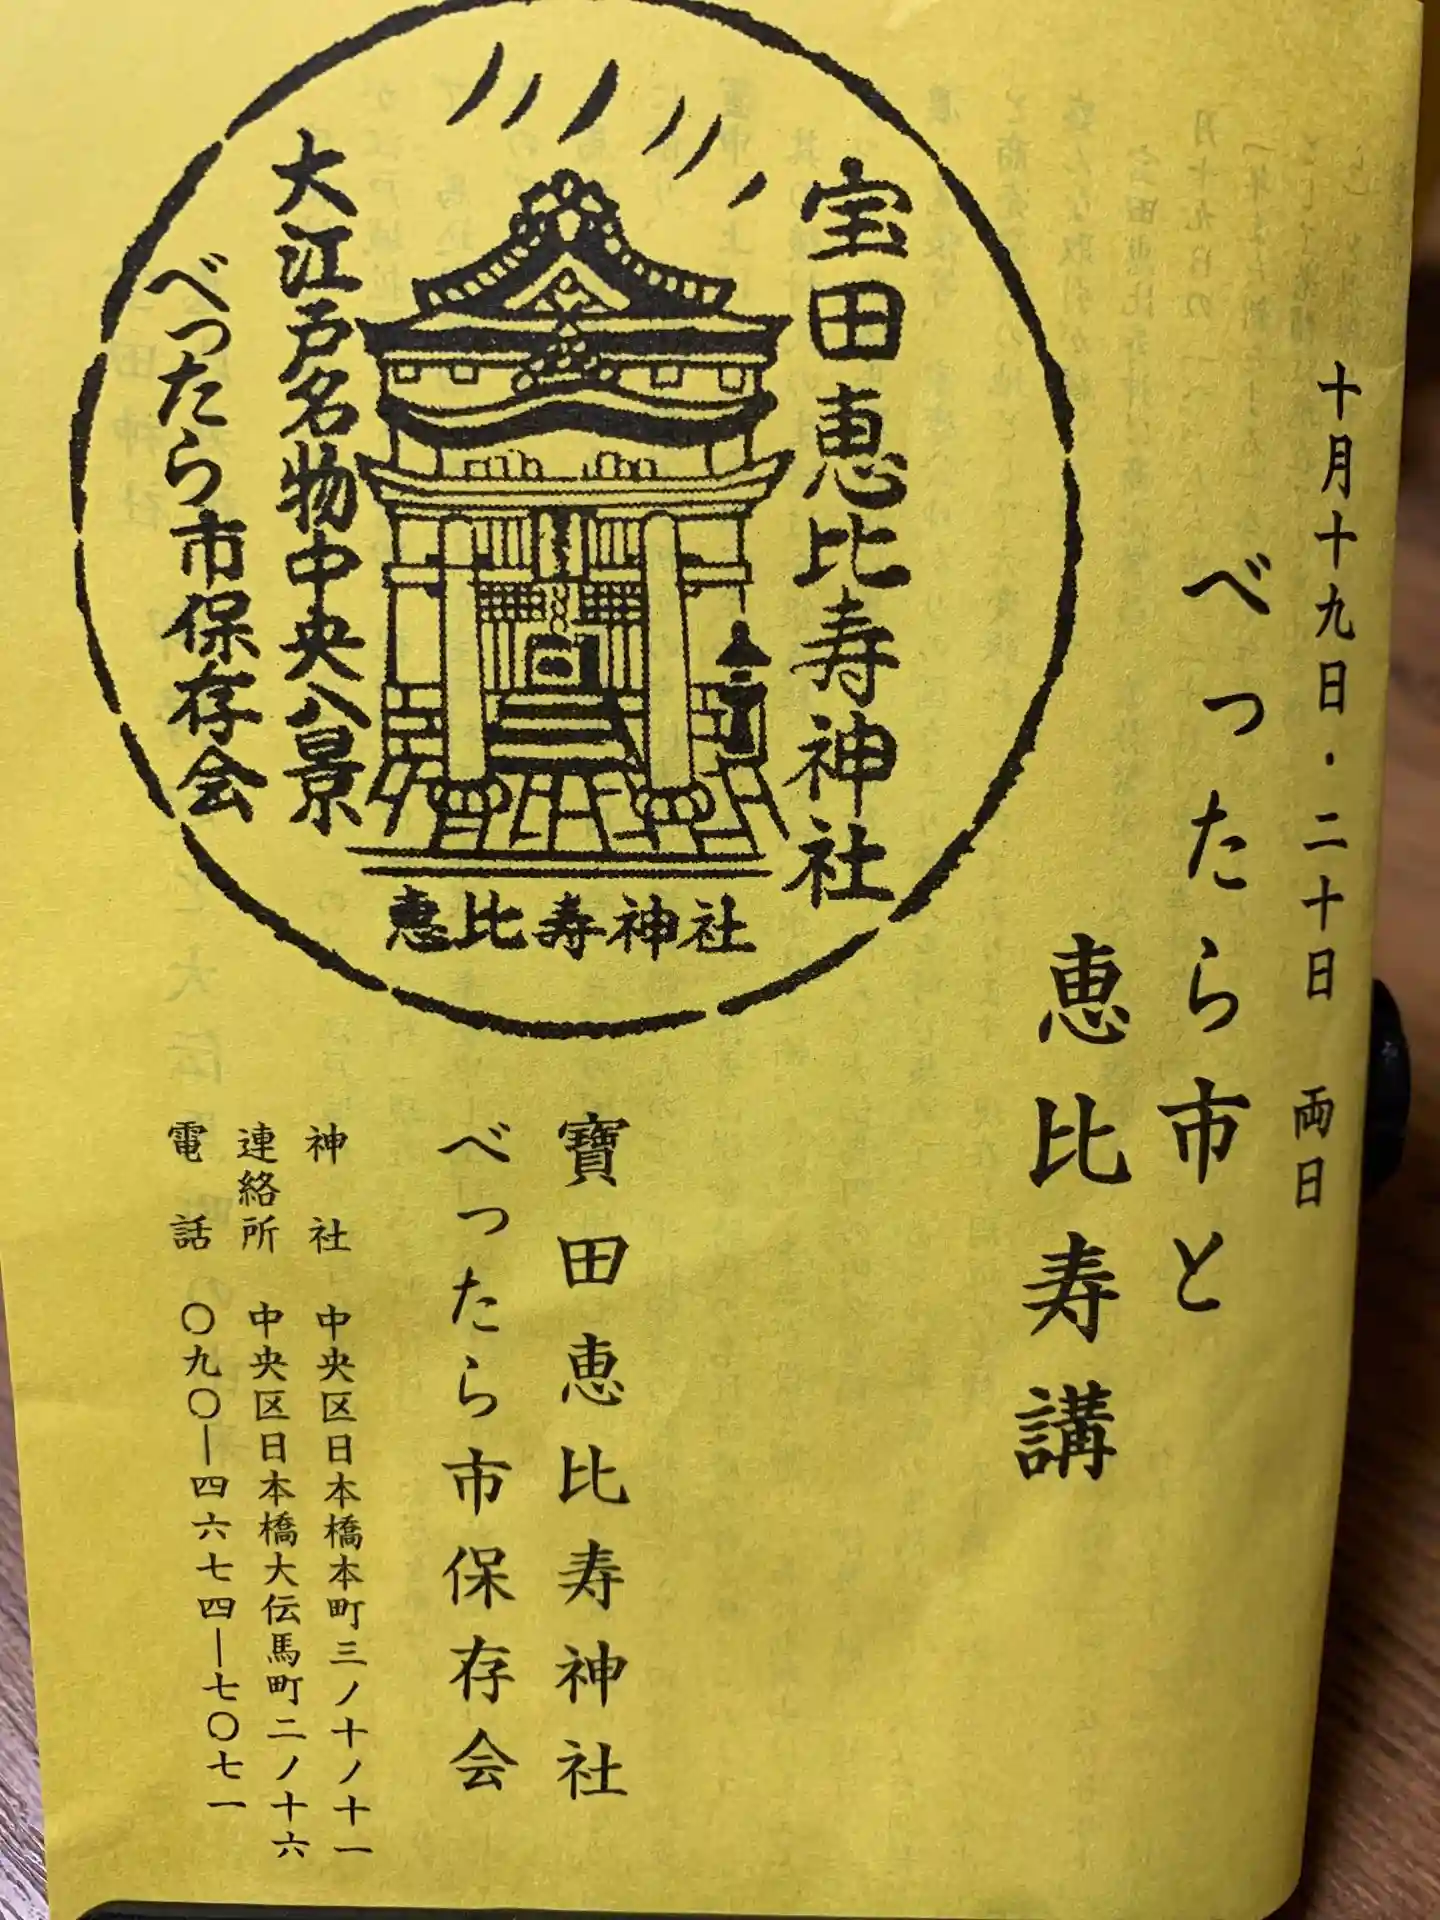 十月十九日・二十日 両日
べったら市と
恵比寿講
宝田恵比寿神社
大江戸名物中央八景
べったら市保存会
恵比寿神社
寶田恵比寿神社
べったら市保存会
神社 中央区日本橋本町三ノ十ノ十一
連絡所 中央区日本橋大伝馬町二ノ十六
電話 〇九〇―四六七四―七〇七一